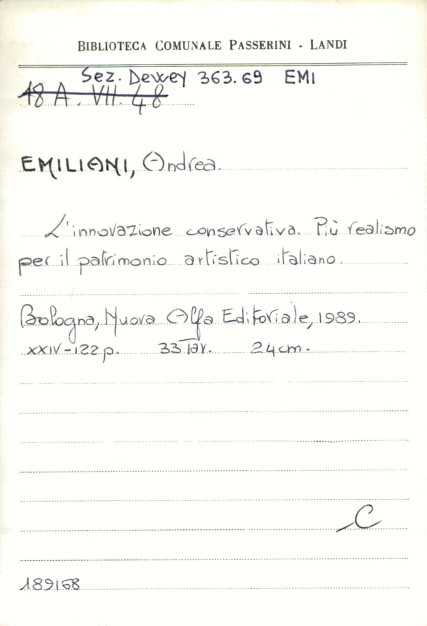 BIBLIOTECA COMUNALE PASSERINI - LANDI
Sez. Dewey 363.69 EMI
18 A. VII. 48
EMILIANI, Andrea.
L'innovazione conservativa. Più realismo
per il patrimonio artistico italiano.
Bologna, Nuova Alfa Editoriale, 1989.
XXIV-122 p. 33 Tav. 24 cm.
C
189168